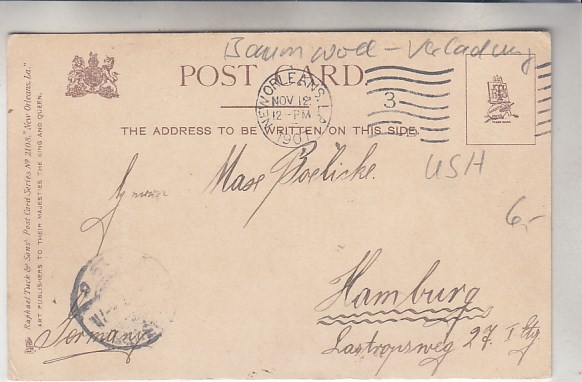 Baumwoll-Verladung
POST CARD
NEW ORLEANS, LA.
NOV 12
12-PM
190
3
THE ADDRESS TO BE WRITTEN ON THIS SIDE.
USA
6,-
Max Boelicke.
Hamburg
Lastropsweg 27. I Etg.
Germany
Raphael Tuck & Sons' Post Card Series Nº 2108, "New Orleans, La."
ART PUBLISHERS TO THEIR MAJESTIES THE KING AND QUEEN.